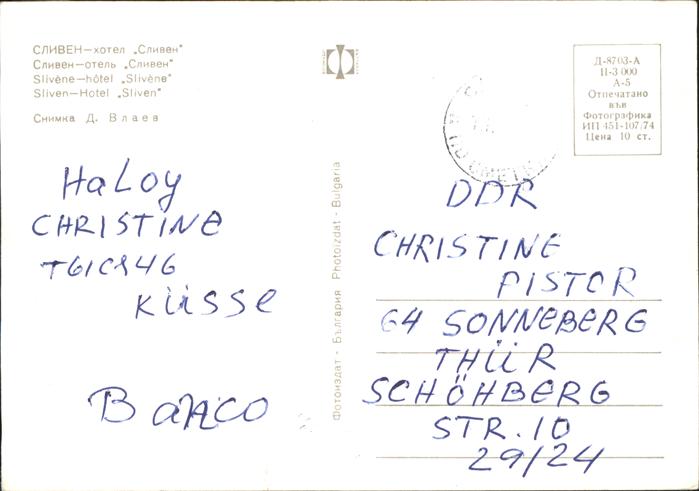 СЛИВЕН—хотел „Сливен“
Сливен—отель „Сливен“
Slivène—hôtel „Slivène“
Sliven—Hotel „Sliven“
Снимка Д. Влаев
HaLoy
CHRISTINE
KÜSSE
Фотоиздат - България Photoizdat - Bulgaria
Д-8703-А
II-3 000
А-5
Отпечатано
във
Фотографика
ИП 451-107/74
Цена 10 ст.
DDR
CHRISTINE
PISTOR
64 SONNEBERG
THÜR
SCHÖHBERG
STR. 10
29/24